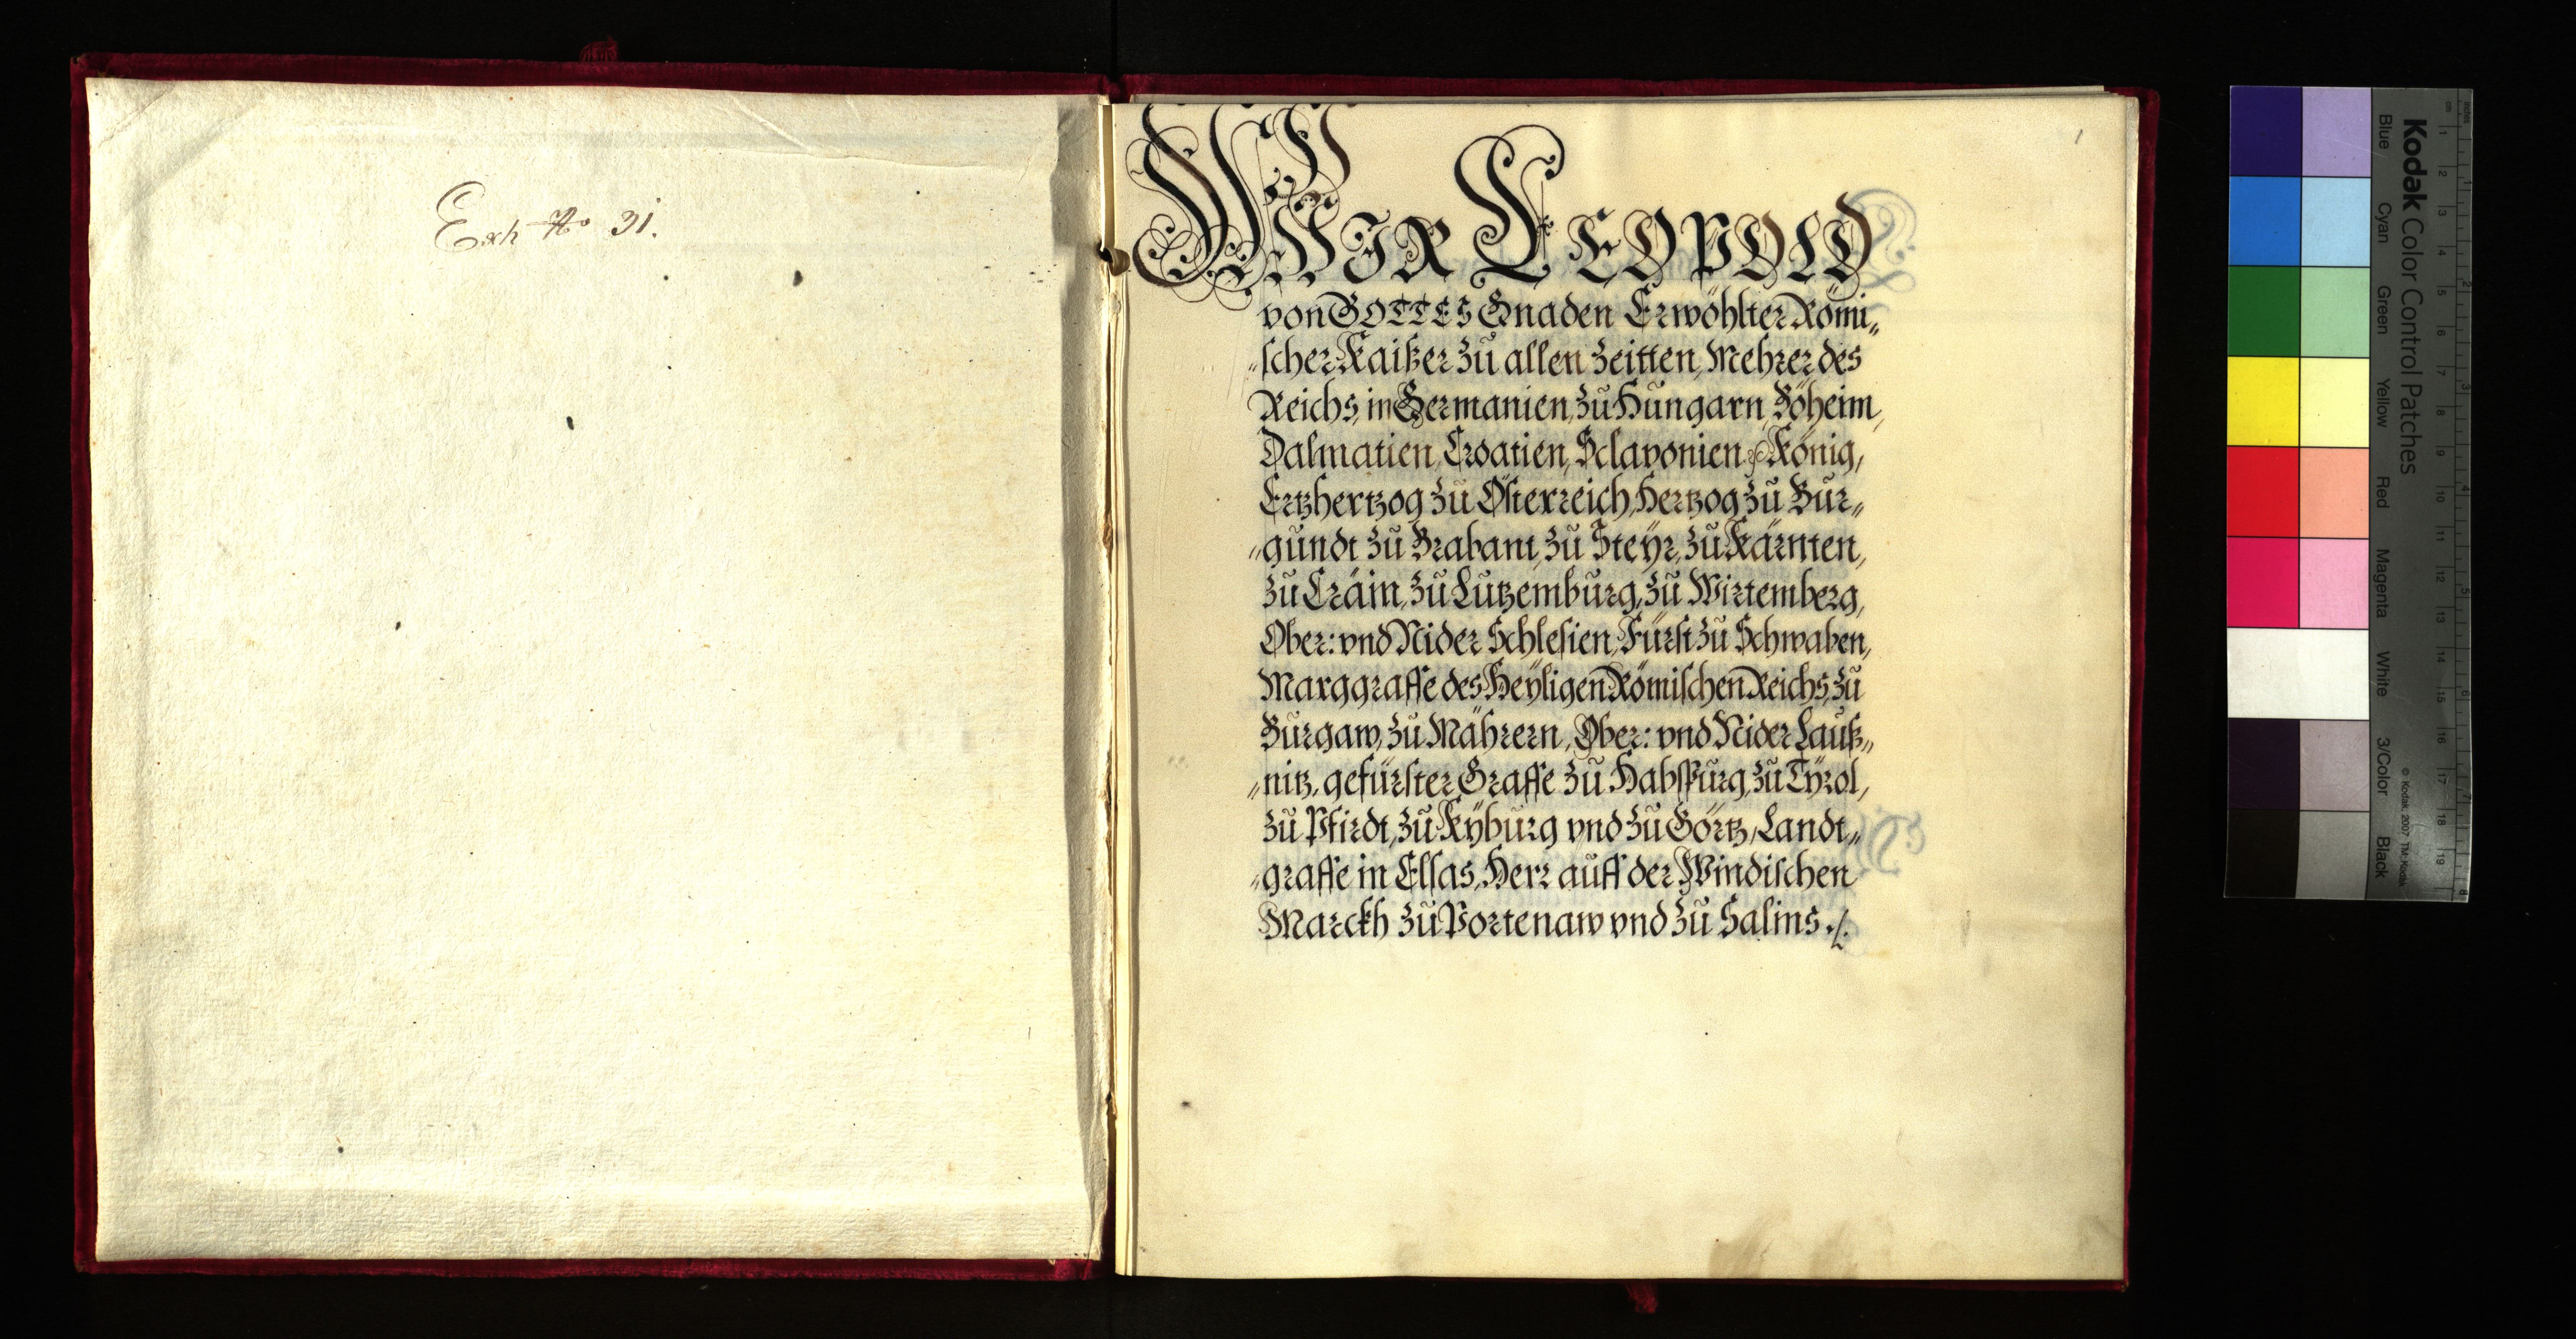 Exh No 31.
1
WIR LEOPOLD
von GOTTES Gnaden Erwöhlter Römi„
„scher Kaißer zu allen Zeitten, Mehrer des
Reichs, in Germanien, zu Hungarn, Böheim,
Dalmatien, Croatien, Sclavonien &c König,
Ertzhertzog zu Österreich, Hertzog zu Bur„
„gundt zu Brabant, zu Steÿr, zu Kärnten,
zu Cräin, zu Lutzemburg, zu Wirtemberg,
Ober: vnd Nider Schlesien, Fürst zu Schwaben,
Marggraffe des Heÿligen Römischen Reichs, zu
Burgaw, zu Mährern, Ober: vnd Nider Lauß„
„nitz, gefürster Graffe zu Habspurg, zu Tÿrol,
zu Pfirdt, zu Kÿburg vnd zu Görtz, Landt„
„graffe in Elsas, Herr auff der Windischen
Marckh zu Portenaw vnd zu Salins ./.
Kodak Color Control Patches
Blue Cyan Green Yellow Red Magenta White 3/Color Black
© Kodak, 2007 TM: Kodak
inches 1 2 3 4 5 6 7 8
cm 1 2 3 4 5 6 7 8 9 10 11 12 13 14 15 16 17 18 19